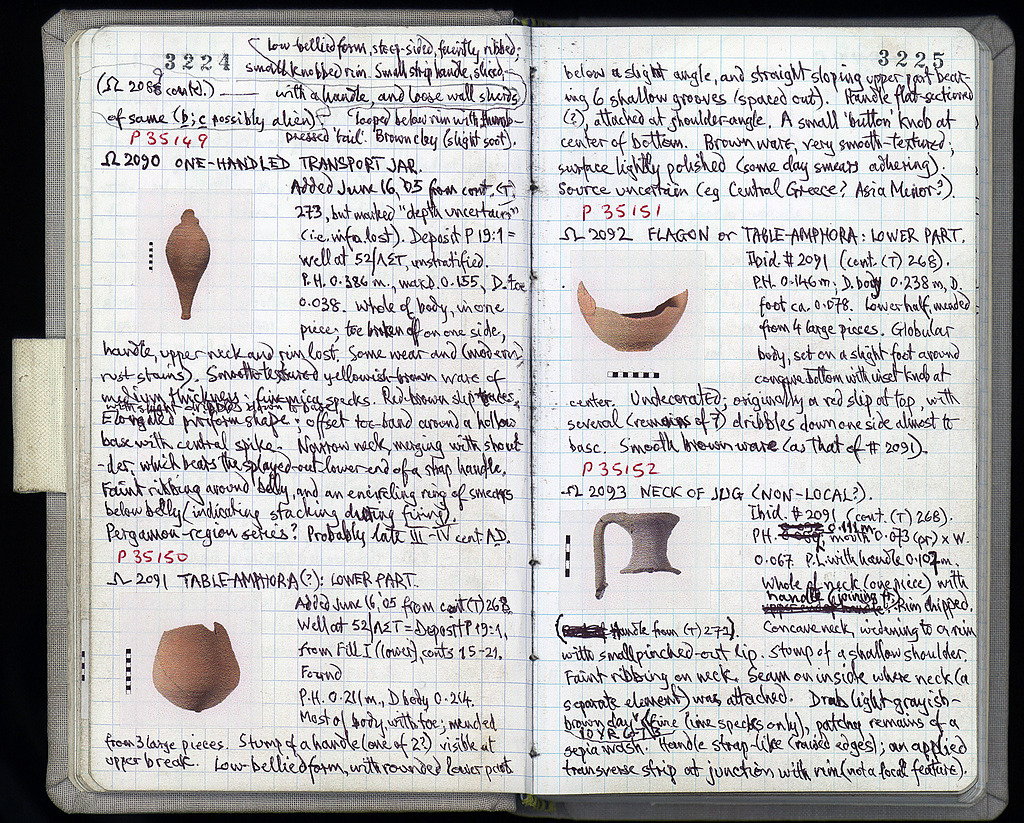 3224
Low-bellied form, steep-sided, faintly ribbed;
small knobbed rim. Small strip handle, sliced,
(Ω 2088 contd.) — with a handle, and loose wall sherds
of same (b; c possibly alien). looped below rim with thumb-
P 35149
pressed 'tail'. Brown clay (slight soot).
Ω 2090 ONE-HANDLED TRANSPORT JAR.
Added June 16, '05 from cont. (T)
273, but marked "depth uncertain"
(i.e. info. lost). Deposit P 19:1 =
well at 52/ΛΣΤ, unstratified.
P.H. 0.386 m., max D. 0.155, D. toe
0.038. Whole of body, in one
piece; toe broken off on one side,
handle, upper neck and rim lost. Some wear and (modern)
rust stains). Smooth-textured yellowish-brown ware of
medium thickness: fine mica specks. Red-brown slip traces,
with slight dribbles down to base.
Elongated piriform shape: offset toe-band around a hollow
base with central spike. Narrow neck, merging with shoul-
-der, which bears the splayed-out lower end of a strap handle.
Faint ribbing around belly, and an encircling ring of smears
below belly (indicating stacking during firing).
Pergamon-region series? Probably late III-IV cent. A.D.
P 35150
Ω 2091 TABLE-AMPHORA(?): LOWER PART.
Added June 16, '05 from cont (T) 268
Well at 52/ΛΣΤ = Deposit P 19:1,
from Fill I (lower), conts 15-21.
Found
P.H. 0.211 m., D body 0.214.
Most of body, with toe; mended
from 3 large pieces. Stump of a handle (one of 2?) visible at
upper break. Low-bellied form, with rounded lower part
3225
below a slight angle, and straight sloping upper part bear-
ing 6 shallow grooves (spaced out). Handle flat-sectioned
(?), attached at shoulder-angle. A small 'button' knob at
center of bottom. Brown ware, very smooth-textured;
surface lightly polished (some day smears adhering).
Source uncertain (eg Central Greece? Asia Minor?).
P 35151
Ω 2092 FLAGON or TABLE-AMPHORA: LOWER PART.
Ibid. # 2091 (cont. (T) 268).
P.H. 0.146 m; D. body 0.238 m, D.
foot ca. 0.078. Lower half, mended
from 4 large pieces. Globular
body, set on a slight foot around
concave bottom with inset knob at
center. Undecorated; originally a red slip at top, with
several (remains of 7) dribbles down one side almost to
base. Smooth brown ware (as that of # 2091).
P 35152
Ω 2093 NECK OF JUG (NON-LOCAL?).
Ibid. # 2091 (cont. (T) 268).
P.H. 0.111 m.
mouth 0.073 (pr.) x W.
0.067. P.L with handle 0.107 m.
Whole of neck (one piece) with
handle (joining it). Rim chipped.
(Handle from (T) 272). Concave neck, widening to a rim
with small pinched-out lip. Stump of a shallow shoulder.
Faint ribbing on neck. Seam on inside where neck (a
separate element) was attached. Drab light-grayish-
brown clay (fine lime specks only), patchy remains of a
10 YR 6-7/3
sepia wash. Handle strap-like (raised edges); an applied
transverse strip at junction with rim (not a local feature).